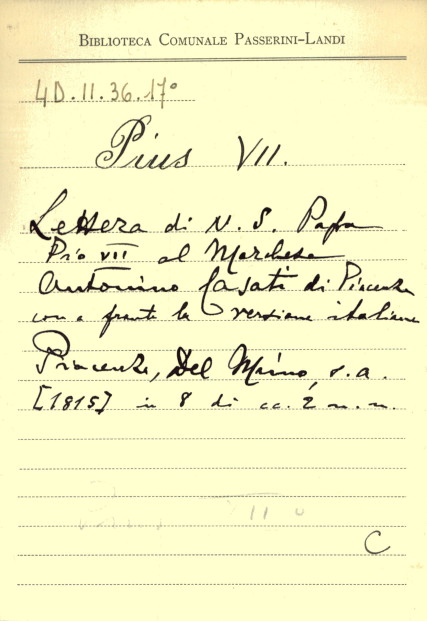 BIBLIOTECA COMUNALE PASSERINI-LANDI
4D.II.36.17°
Pius VII.
Lettera di N. S. Papa
Pio VII al Marchese
Antonino Casati di Piacenza
con a fronte la versione italiana
Piacenza, Del Mino, s.a.
[1815] in 8 di cc. 2 n.n.
C